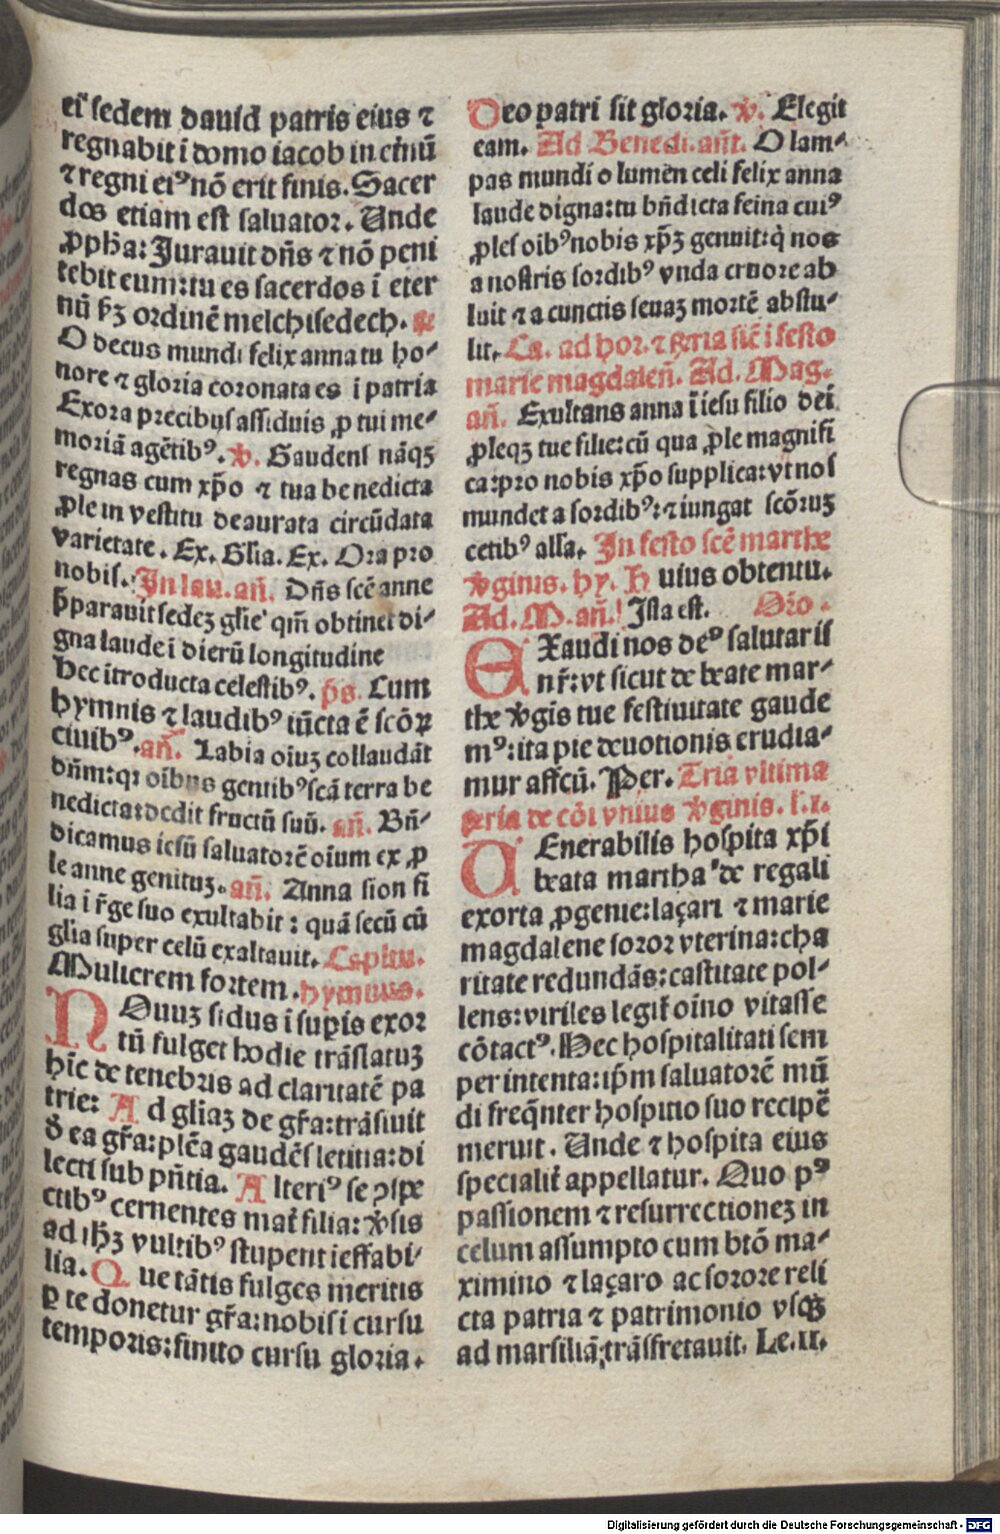 ei ſedem dauid patris eius ⁊
regnabit ī domo iacob in et̄nū
⁊ regni eiꝰ nō erit finis. Sacer
dos etiam eſt ſaluator. Unde
ꝓph̄a: Jurauit dn̄s ⁊ nō peni
tebit eum: tu es ſacerdos ī eter
nū ẜꝫ ordinē melchiſedech.
O decus mundi felix anna tu ho⸗
nore ⁊ gloria coronata es ī patria
Exora precibuſ aſſiduis ꝓ tui me⸗
moriā agētibꝰ. ℣. Gaudenſ nāqꝫ
regnas cum xp̄o ⁊ tua benedicta
ꝓle in veſtitu deaurata circūdata
varietate. Ex. Gl̄ia. Ex. Ora pro
nobiſ. In lau. añ. Dn̄s ſcē anne
p̄parauit ſedeꝫ gl̄ie qm̄ obtinet di⸗
gna laude ī dierū longitudine
Hec ītroducta celeſtibꝰ. p̄s. Cum
hymnis ⁊ laudibꝰ iūcta ē ſcōꝝ
ciuibꝰ. añ. Labia oiuꝫ collaudāt
dn̄m: qꝛ oibus gentibꝰ ſcā terra be
nedicta: dedit fructū ſuū. añ. Bn̄⸗
dicamus ieſū ſaluatorē oium ex ꝓ
le anne genituꝫ. añ. Anna ſion fi
lia ī r̄ge ſuo exultabit: quā ſecū cū
glīa ſuper celū exaltauit. Capitu.
Mulierem fortem. hymnus.
NOuuꝫ ſidus ī ſup̄is exor
tū fulget hodie trāſlatuꝫ
hīc de tenebris ad claritatē pa
trie: Ad gl̄iaꝫ de gr̄a: trāſiuit
ea gr̄a: plēa gaudēſ letitia: di
lecti ſub pn̄tia. Alteriꝰ ſe ꝯſpe
ctibꝰ cernentes mat̄ filia: ℣ſis
ad ihꝫ vultibꝰ ſtupent ieffabi⸗
lia. Que tātis fulges meritis
ꝑ te donetur gr̄a: nobiſ i curſu
temporis: finito curſu gloria.
Deo patri ſit gloria. ℣. Elegit
eam. Ad Benedi. añt. O lam⸗
pas mundi o lumen celi felix anna
laude digna: tu bn̄dicta feīna cuiꝰ
ꝓleſ oibꝰ nobis xp̄ꝫ genuit: q̇ nos
a noſtris ſordibꝰ vnda cruore ab
luit ⁊ a cunctis ſeuaꝫ mortē abſtu⸗
lit. Ca. ad hor. ⁊ feria ſic̄ ī feſto
marie magdaleñ. Ad. Mag.
añ. Exultans anna ī ieſu filio dei
ꝓleqꝫ tue filie: cū qua ꝓle magnifi
ca: pro nobis xp̄o ſupplica: vt noſ
mundet a ſordibꝰ: ⁊ iungat ſcōruꝫ
cetibꝰ alla. In feſto ſcē marthe
℣ginis. hy. Huius obtentu.
Ad. M. añ. Iſta eſt. Orō.
EXaudi nos deꝰ ſalutariſ
nr̄: vt ſicut de beate mar⸗
the ℣gīs tue feſtiuitate gaude
mꝰ: ita pie deuotionis erudia⸗
mur affcū. Per. Tria vltima
feria de cōi vnius ℣ginis. l. ı.
UEnerabilis hoſpita xp̄i
beata martha de regali
exorta ꝓgenie: laçari ⁊ marie
magdalene ſoror vterina: cha
ritate redundās: caſtitate pol⸗
lens: viriles legit̄ oīno vitaſſe
cōtactꝰ. Hec hoſpitalitati ſem
per intenta: ip̄m ſaluatorē mū
di freq̄nter hoſpitio ſuo recipē
meruit. Unde ⁊ hoſpita eius
ſpecialit̄ appellatur. Quo pꝰ
paſſionem ⁊ reſurrectioneꝫ in
celum aſſumpto cum btō ma⸗
ximino ⁊ laçaro ac ſorore reli
cta patria ⁊ patrimonio vſqꝫ
ad marſiliā trāſfretauit. Le. ıı.
Digitalisierung gefördert durch die Deutsche Forschungsgemeinschaft - DFG